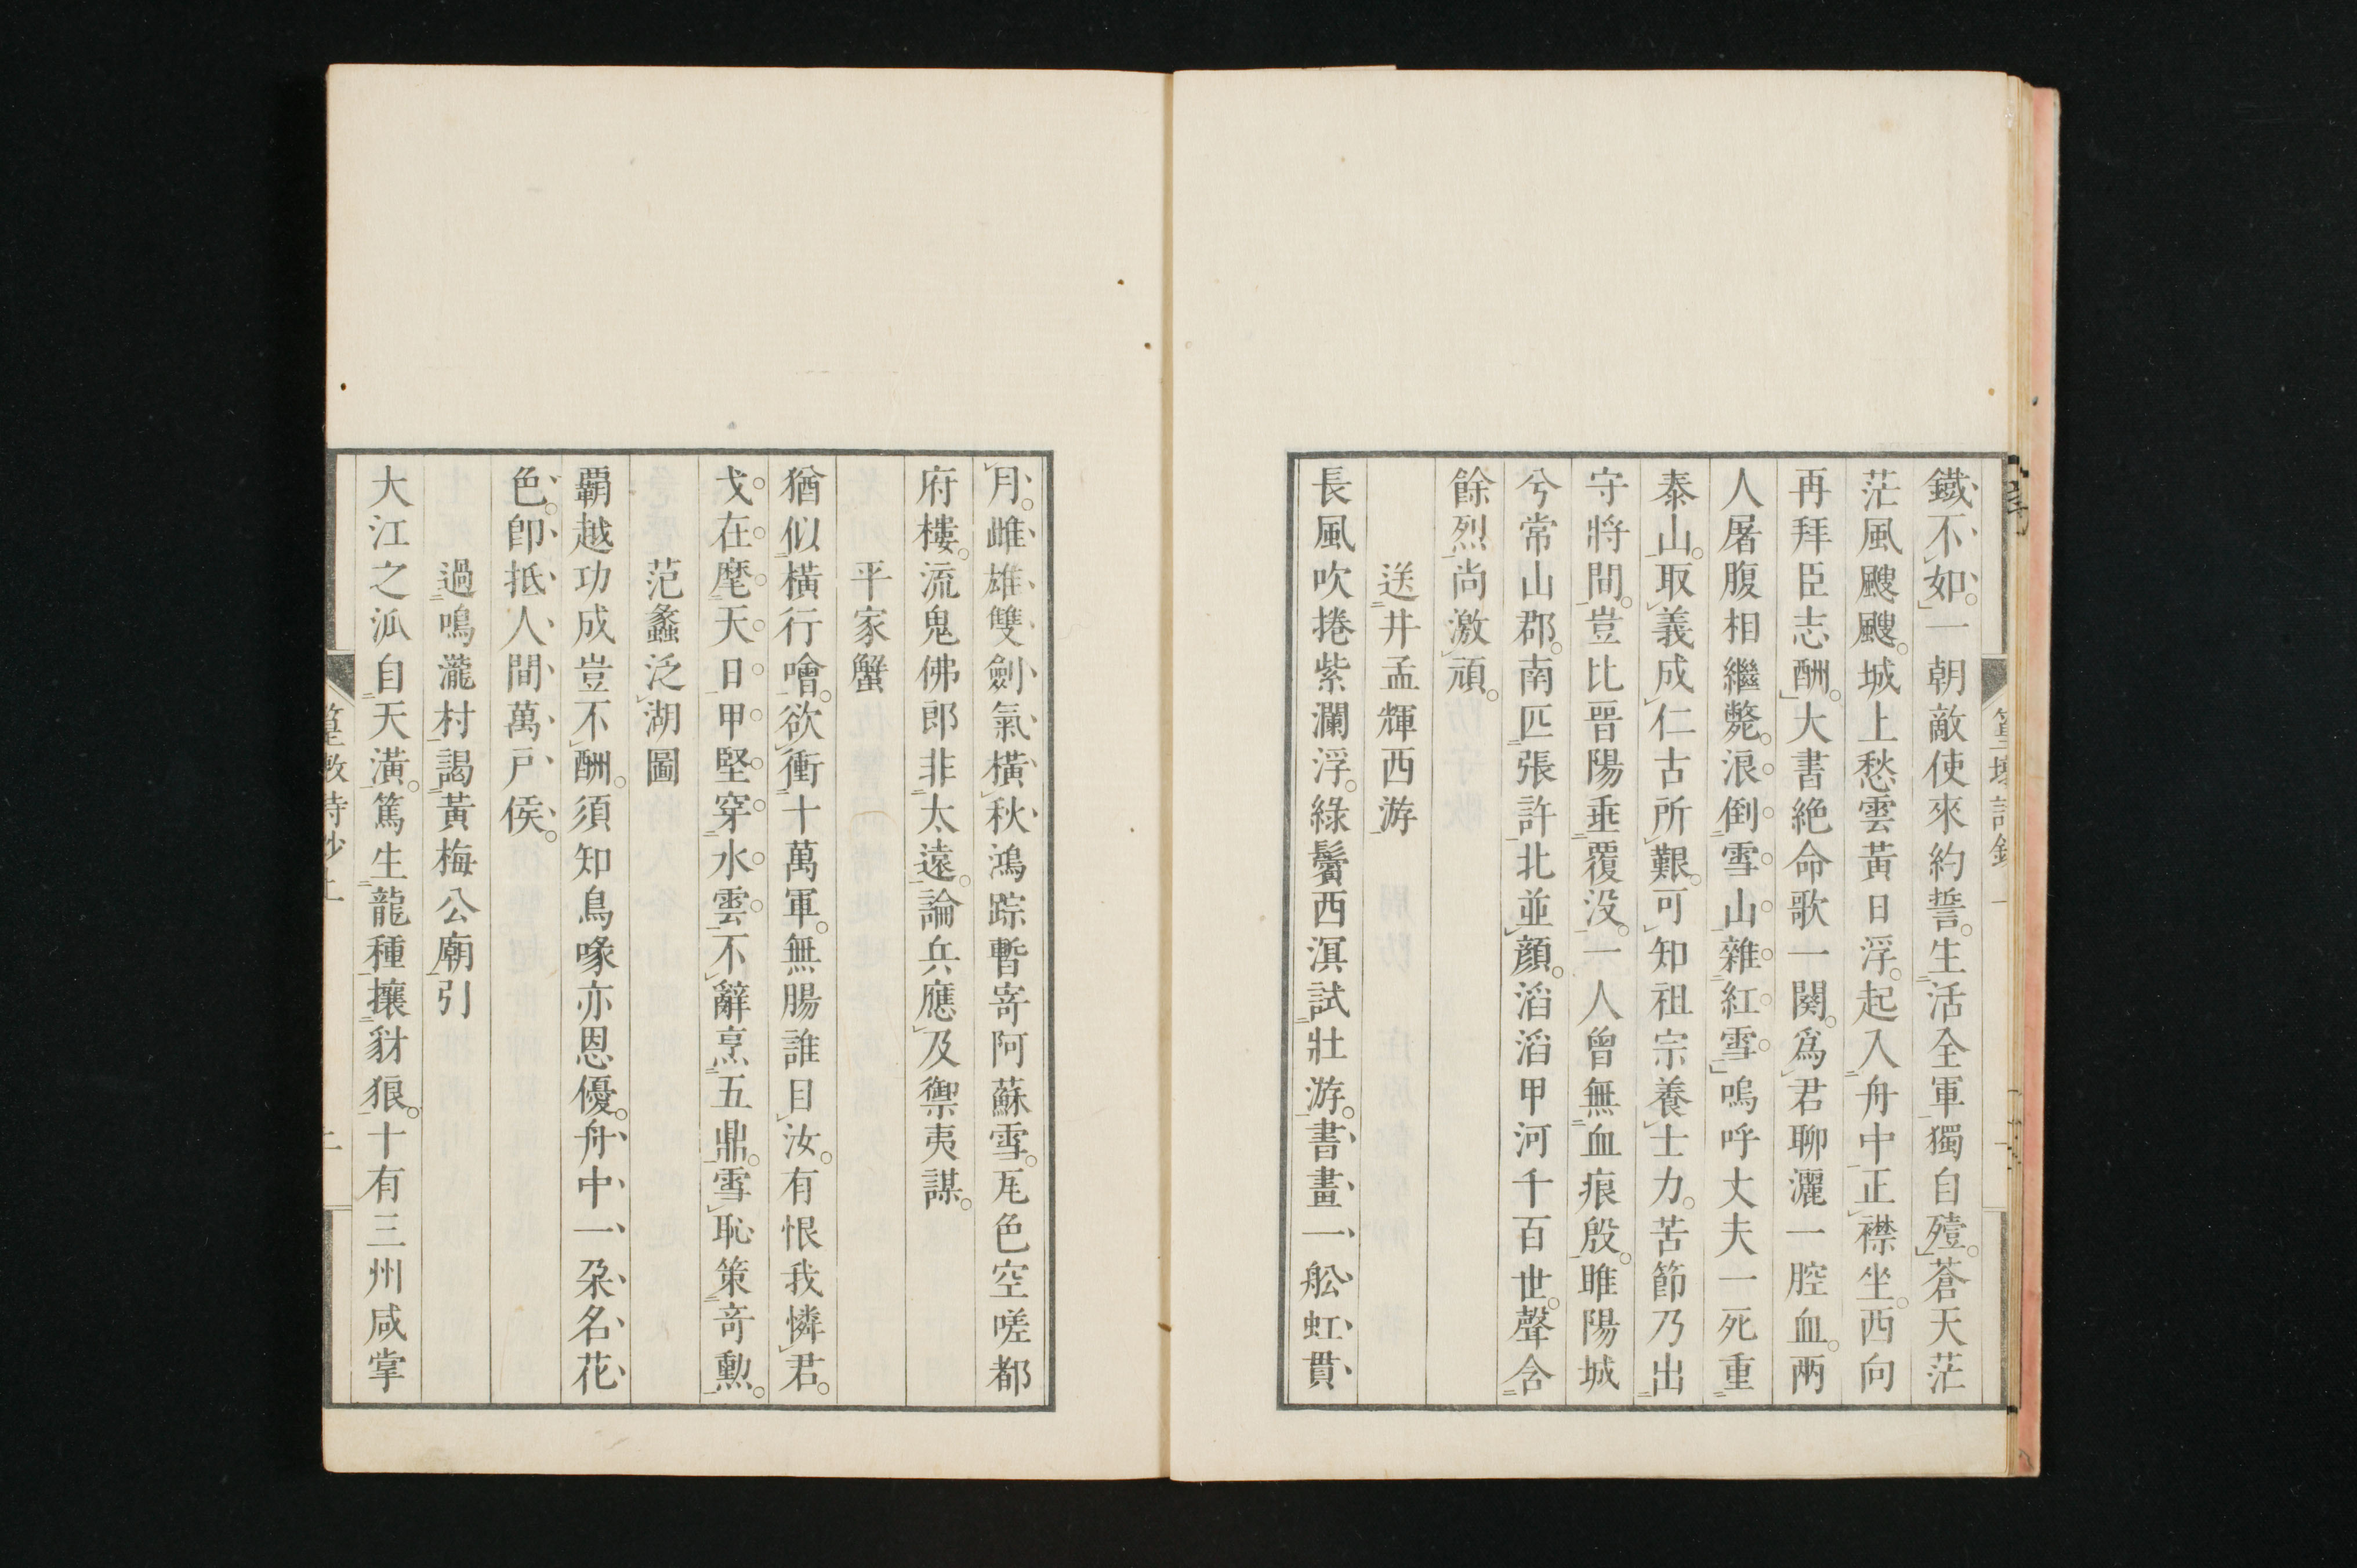 鐵不如。一朝敵使來約誓。生活全軍獨自殪。蒼天茫
茫風颼颼。城上愁雲黃日浮。起入舟中正襟坐。西向
再拜臣志酬。大書絶命歌一闋。爲君聊灑一腔血。兩
人屠腹相繼斃。浪倒雪山雜紅雪。嗚呼丈夫一死重
泰山。取義成仁古所艱。可知祖宗養士力。苦節乃出
守將間。豈比晋陽垂覆没。一人曾無血痕殷。睢陽城
兮常山郡。南匹張許北並顏。滔滔甲河千百世。聲含
餘烈尚激頑。
送井孟輝西游
長風吹捲紫瀾浮。綠鬢西溟試壯游。書畫一舩虹貫
月。雌雄雙劍氣橫秋。鴻踪暫寄阿蘇雪。瓦色空嗟都
府樓。流鬼佛郎非太遠。論兵應及禦夷謀。
平家蟹
猶似橫行噲。欲衝十萬軍。無腸誰曰汝。有恨我憐君。
戈在麾天日。甲堅穿水雲。不辭烹五鼎。雪恥策奇勲。
范蠡泛湖圖
覇越功成豈不酬。須知鳥喙亦恩優。舟中一朶名花
色。卽抵人間萬戶侯。
過鳴瀧村謁黃梅公廟引
大江之泒自天潢。篤生龍種攘豺狼。十有三州咸掌
二